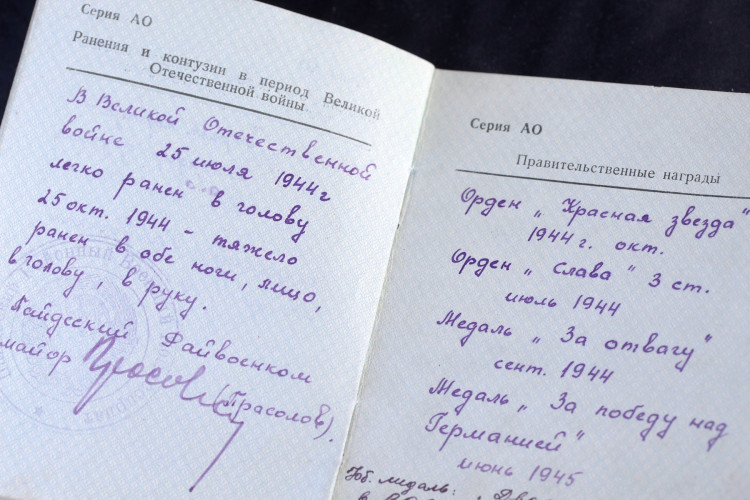 Серия АО
Ранения и контузии в период Великой
Отечественной войны
В Великой Отечественной
войне 25 июля 1944г
легко ранен в голову
25 окт. 1944 - тяжело
ранен в обе ноги, лицо,
в голову, в руку.
Райвоенком
майор
(Прасолов).
Серия АО
Правительственные награды
Орден „Красная звезда"
1944 г. окт.
Орден „Слава" 3 ст.
июль 1944
Медаль „За отвагу"
сент. 1944
Медаль „За победу над
Германией"
июнь 1945
Юб. медаль: